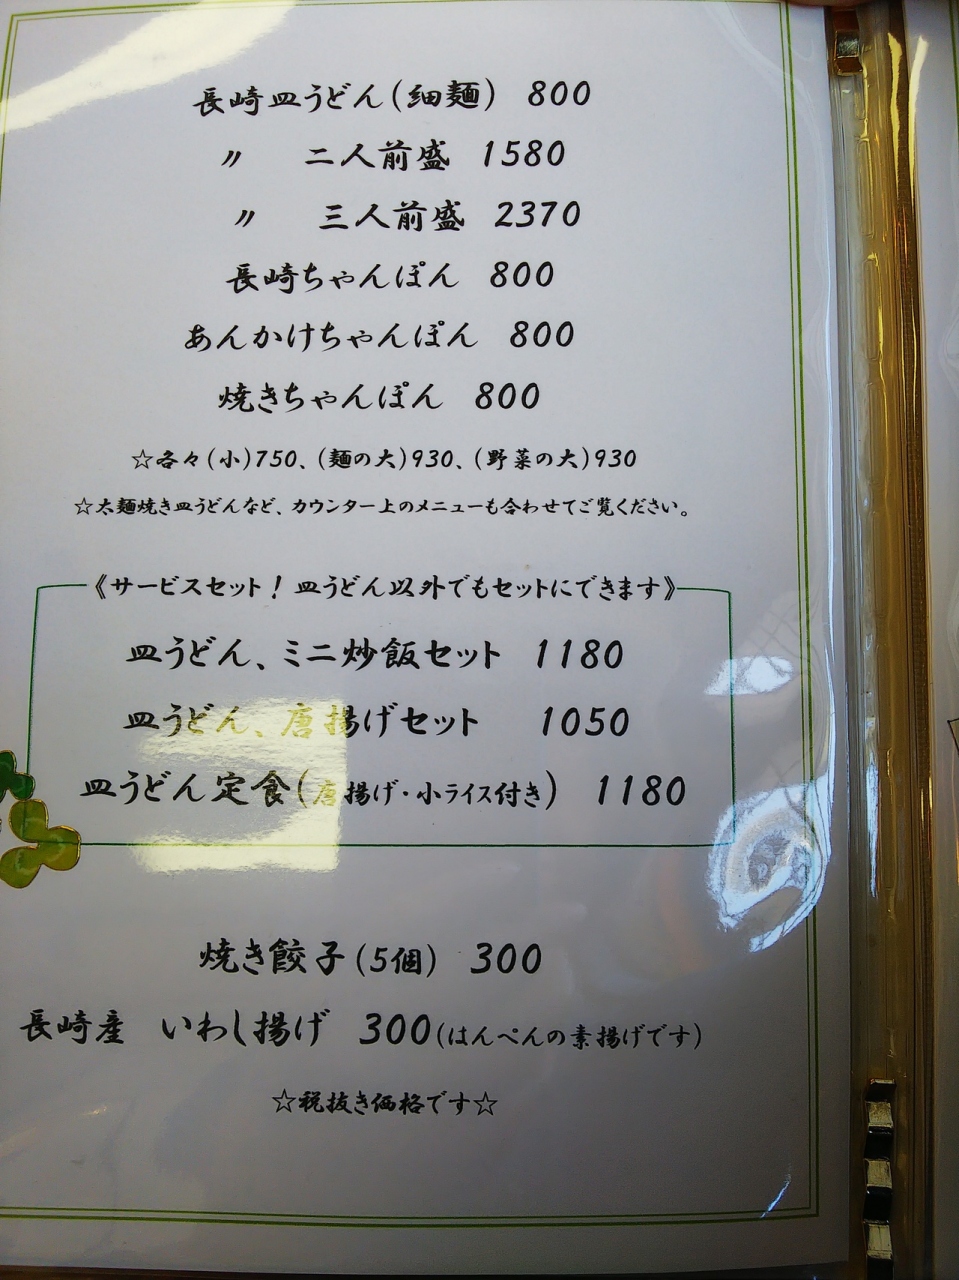 長崎皿うどん(細麺) 800
〃 二人前盛 1580
〃 三人前盛 2370
長崎ちゃんぽん 800
あんかけちゃんぽん 800
焼きちゃんぽん 800
☆各々(小)750、(麺の大)930、(野菜の大)930
☆太麺焼き皿うどんなど、カウンター上のメニューも合わせてご覧ください。
《サービスセット！皿うどん以外でもセットにできます》
皿うどん、ミニ炒飯セット 1180
皿うどん、唐揚げセット 1050
皿うどん定食(唐揚げ・小ライス付き) 1180
焼き餃子(5個) 300
長崎産 いわし揚げ 300(はんぺんの素揚げです)
☆税抜き価格です☆